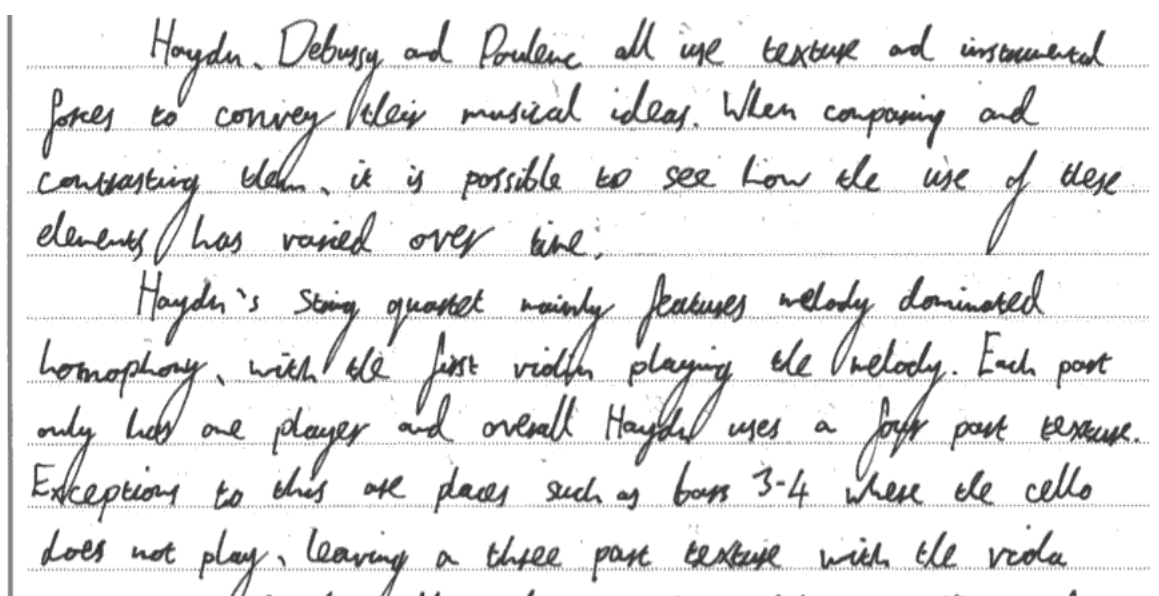 Haydn, Debussy and Poulenc all use texture and instrumental
forces to convey their musical ideas. When comparing and
contrasting them, it is possible to see how the use of these
elements has varied over time.
Haydn's string quartet mainly features melody dominated
homophony, with the first violin playing the melody. Each part
only has one player and overall Haydn uses a four part texture.
Exceptions to this are places such as bars 3-4 where the cello
does not play, leaving a three part texture with the viola